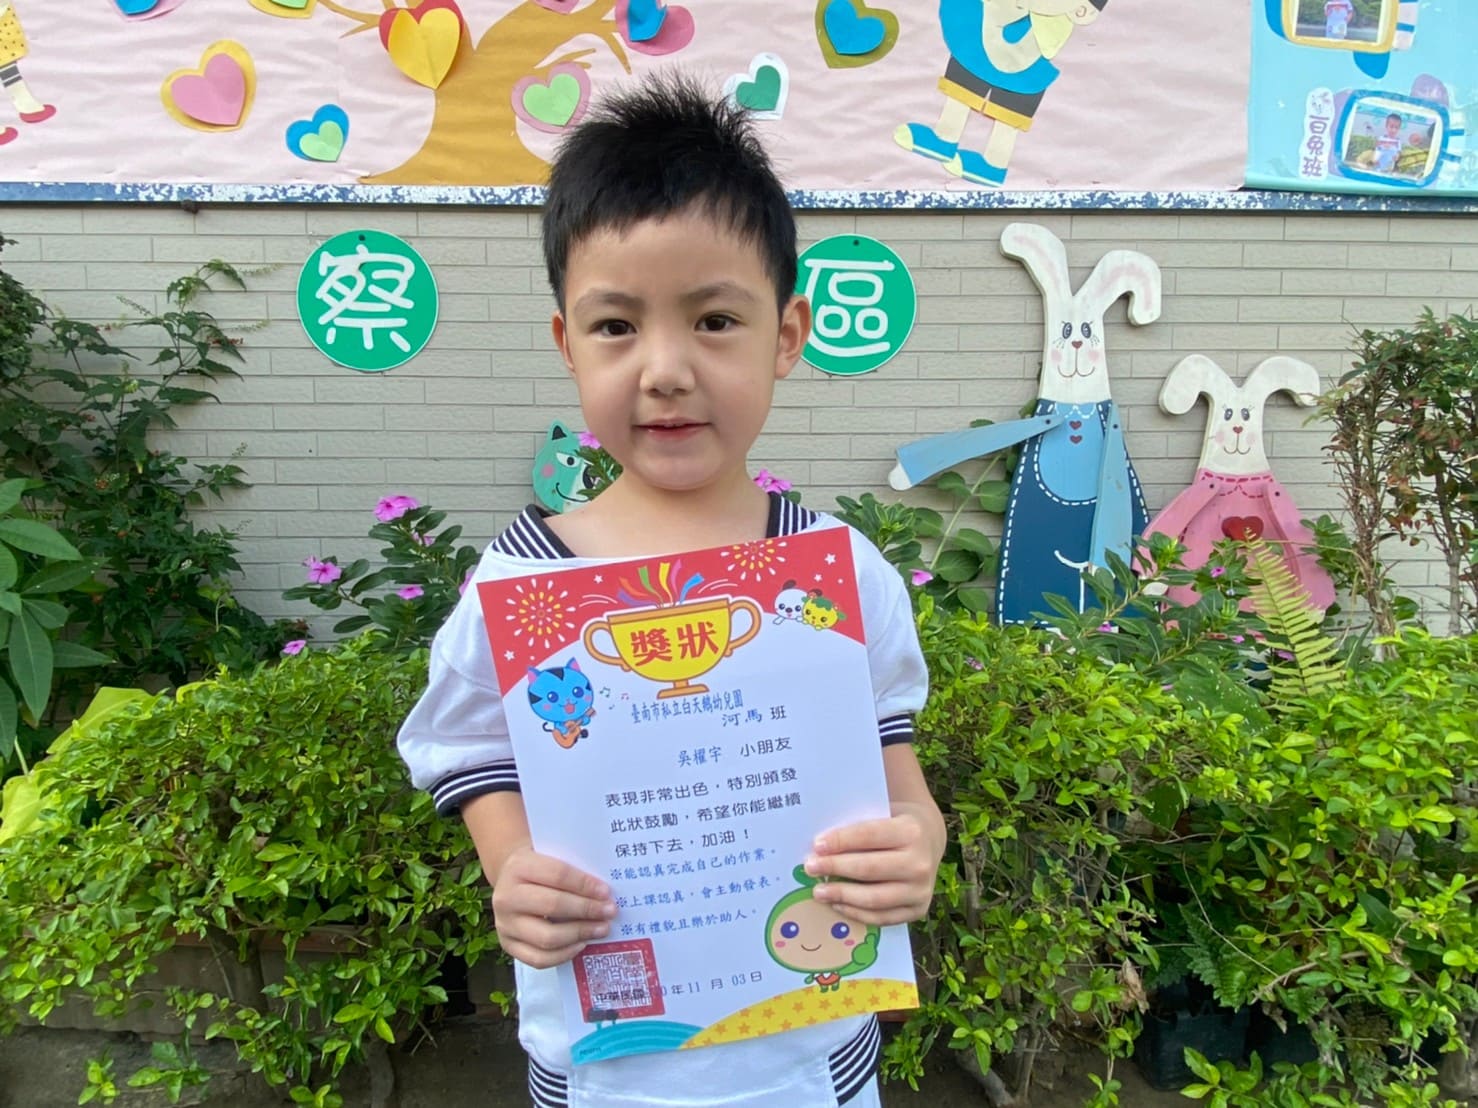 白兔班
察
區
獎狀
臺南市私立白天鵝幼兒園
河馬 班
吳櫂宇 小朋友
表現非常出色，特別頒發
此狀鼓勵，希望你能繼續
保持下去，加油！
※能認真完成自己的作業。
※上課認真，會主動發表。
※有禮貌且樂於助人。
中華民國 10 年 11 月 03 日